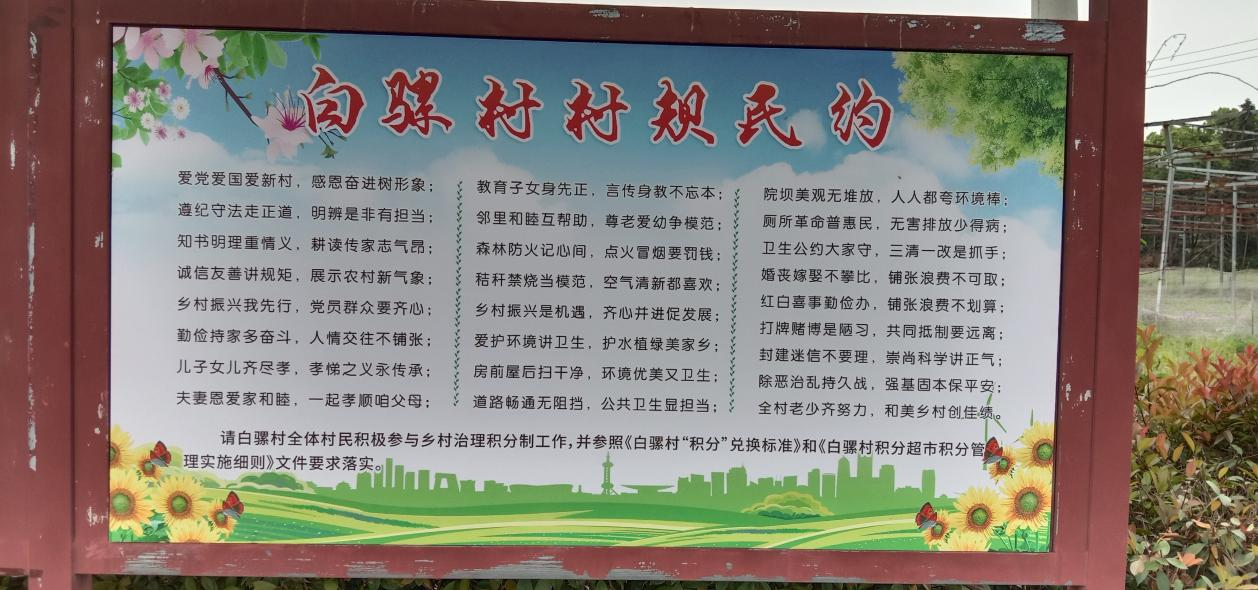 白骡村村规民约
爱党爱国爱新村，感恩奋进树形象；
遵纪守法走正道，明辨是非有担当；
知书明理重情义，耕读传家志气昂；
诚信友善讲规矩，展示农村新气象；
乡村振兴我先行，党员群众要齐心；
勤俭持家多奋斗，人情交往不铺张；
儿子女儿齐尽孝，孝悌之义永传承；
夫妻恩爱家和睦，一起孝顺咱父母；
教育子女身先正，言传身教不忘本；
邻里和睦互帮助，尊老爱幼争模范；
森林防火记心间，点火冒烟要罚钱；
秸秆禁烧当模范，空气清新都喜欢；
乡村振兴是机遇，齐心并进促发展；
爱护环境讲卫生，护水植绿美家乡；
房前屋后扫干净，环境优美又卫生；
道路畅通无阻挡，公共卫生显担当；
院坝美观无堆放，人人都夸环境棒；
厕所革命普惠民，无害排放少得病；
卫生公约大家守，三清一改是抓手；
婚丧嫁娶不攀比，铺张浪费不可取；
红白喜事勤俭办，铺张浪费不划算；
打牌赌博是陋习，共同抵制要远离；
封建迷信不要理，崇尚科学讲正气；
除恶治乱持久战，强基固本保平安；
全村老少齐努力，和美乡村创佳绩。
请白骡村全体村民积极参与乡村治理积分制工作，并参照《白骡村“积分”兑换标准》和《白骡村积分超市积分管
理实施细则》文件要求落实。